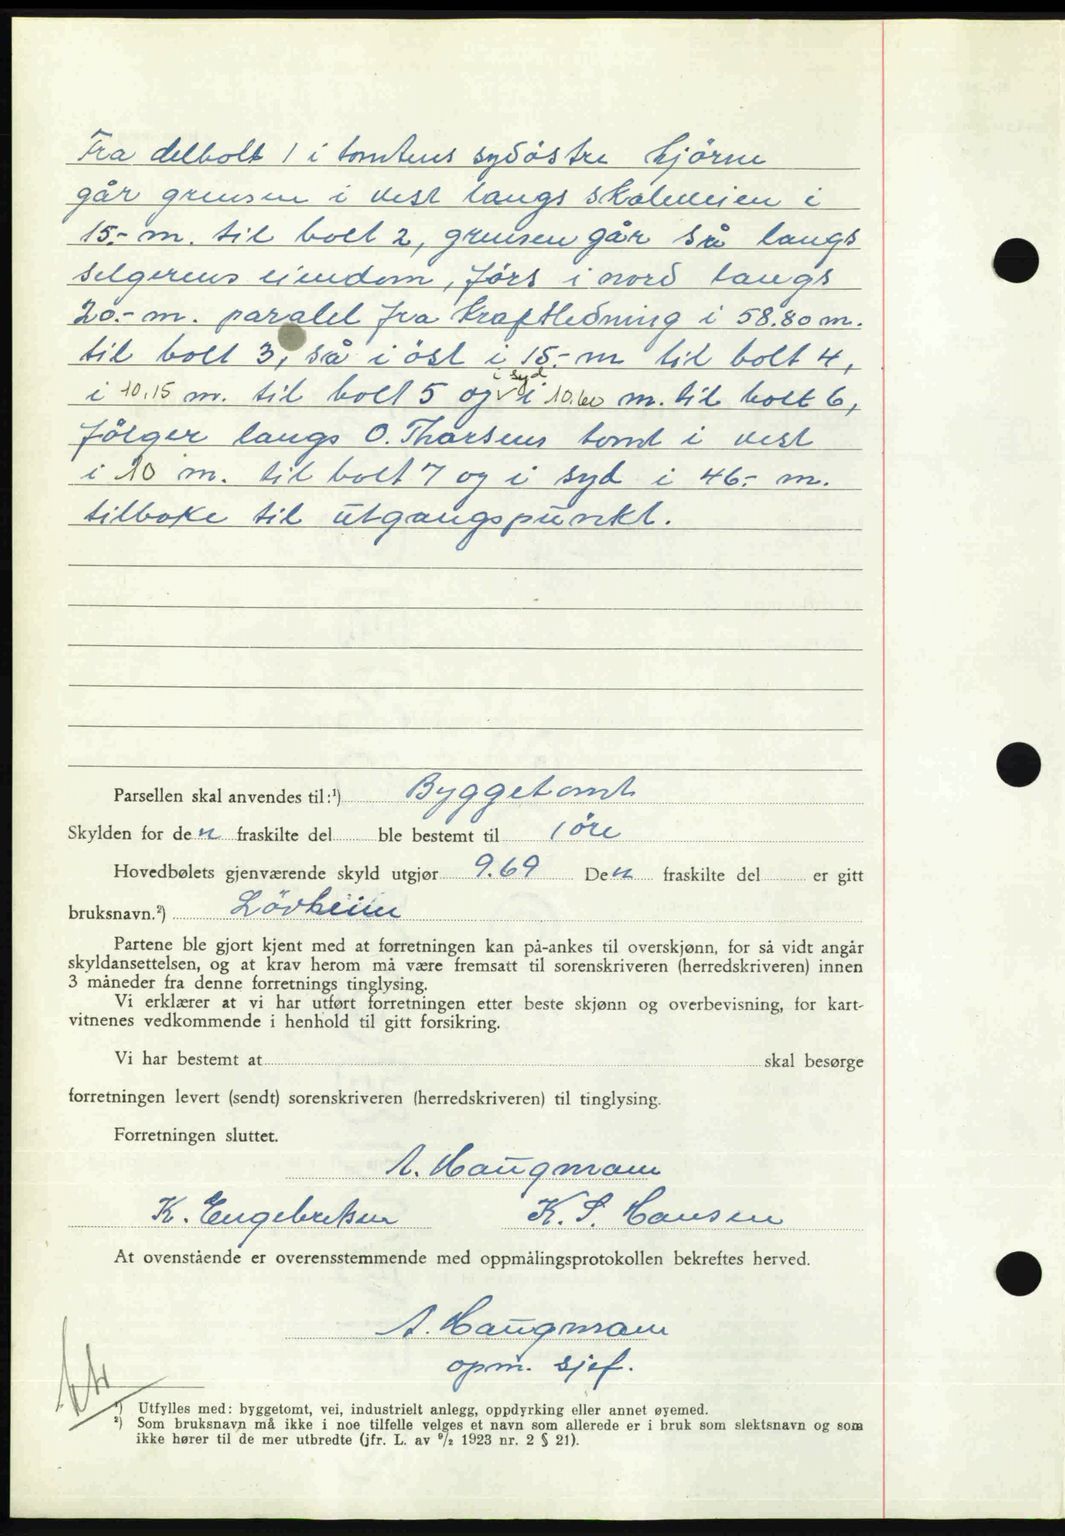 Fra delbolt 1 i tomtens sydöstre hjörne
går grensen i vest langs skoleveien i
15.- m. til bolt 2, grensen går så langs
selgerens eiendom,förs i nord langs
20.- m. paralel fra kraftledning i 58.80 m.
til bolt 3, så i öst i 15.- m til bolt 4,
i syd
i 10.15 m. til bolt 5 og √ i 10.60 m. til bolt 6,
fölger langs O. Thorsens tomt i vest
i 10 m. til bolt 7 og i syd i 46.- m.
tilbake til utgangspunkt.
Parsellen skal anvendes til:¹) Byggetomt
Skylden for den fraskilte del ble bestemt til 1 öre
Hovedbølets gjenværende skyld utgjør 9.69 Den fraskilte del er gitt
bruksnavn.²) Lövheim
Partene ble gjort kjent med at forretningen kan på-ankes til overskjønn, for så vidt angår
skyldansettelsen, og at krav herom må være fremsatt til sorenskriveren (herredskriveren) innen
3 måneder fra denne forretnings tinglysing.
Vi erklærer at vi har utført forretningen etter beste skjønn og overbevisning, for kart-
vitnenes vedkommende i henhold til gitt forsikring.
Vi har bestemt at skal besørge
forretningen levert (sendt) sorenskriveren (herredskriveren) til tinglysing.
Forretningen sluttet.
A. Haugmann
K. Engebretsen K. S. Hansen
At ovenstående er overensstemmende med oppmålingsprotokollen bekreftes herved.
A. Haugmann
opm. sjef.
¹) Utfylles med: byggetomt, vei, industrielt anlegg, oppdyrking eller annet øyemed.
²) Som bruksnavn må ikke i noe tilfelle velges et navn som allerede er i bruk som slektsnavn og som
ikke hører til de mer utbredte (jfr. L. av ⁹/₂ 1923 nr. 2 § 21).